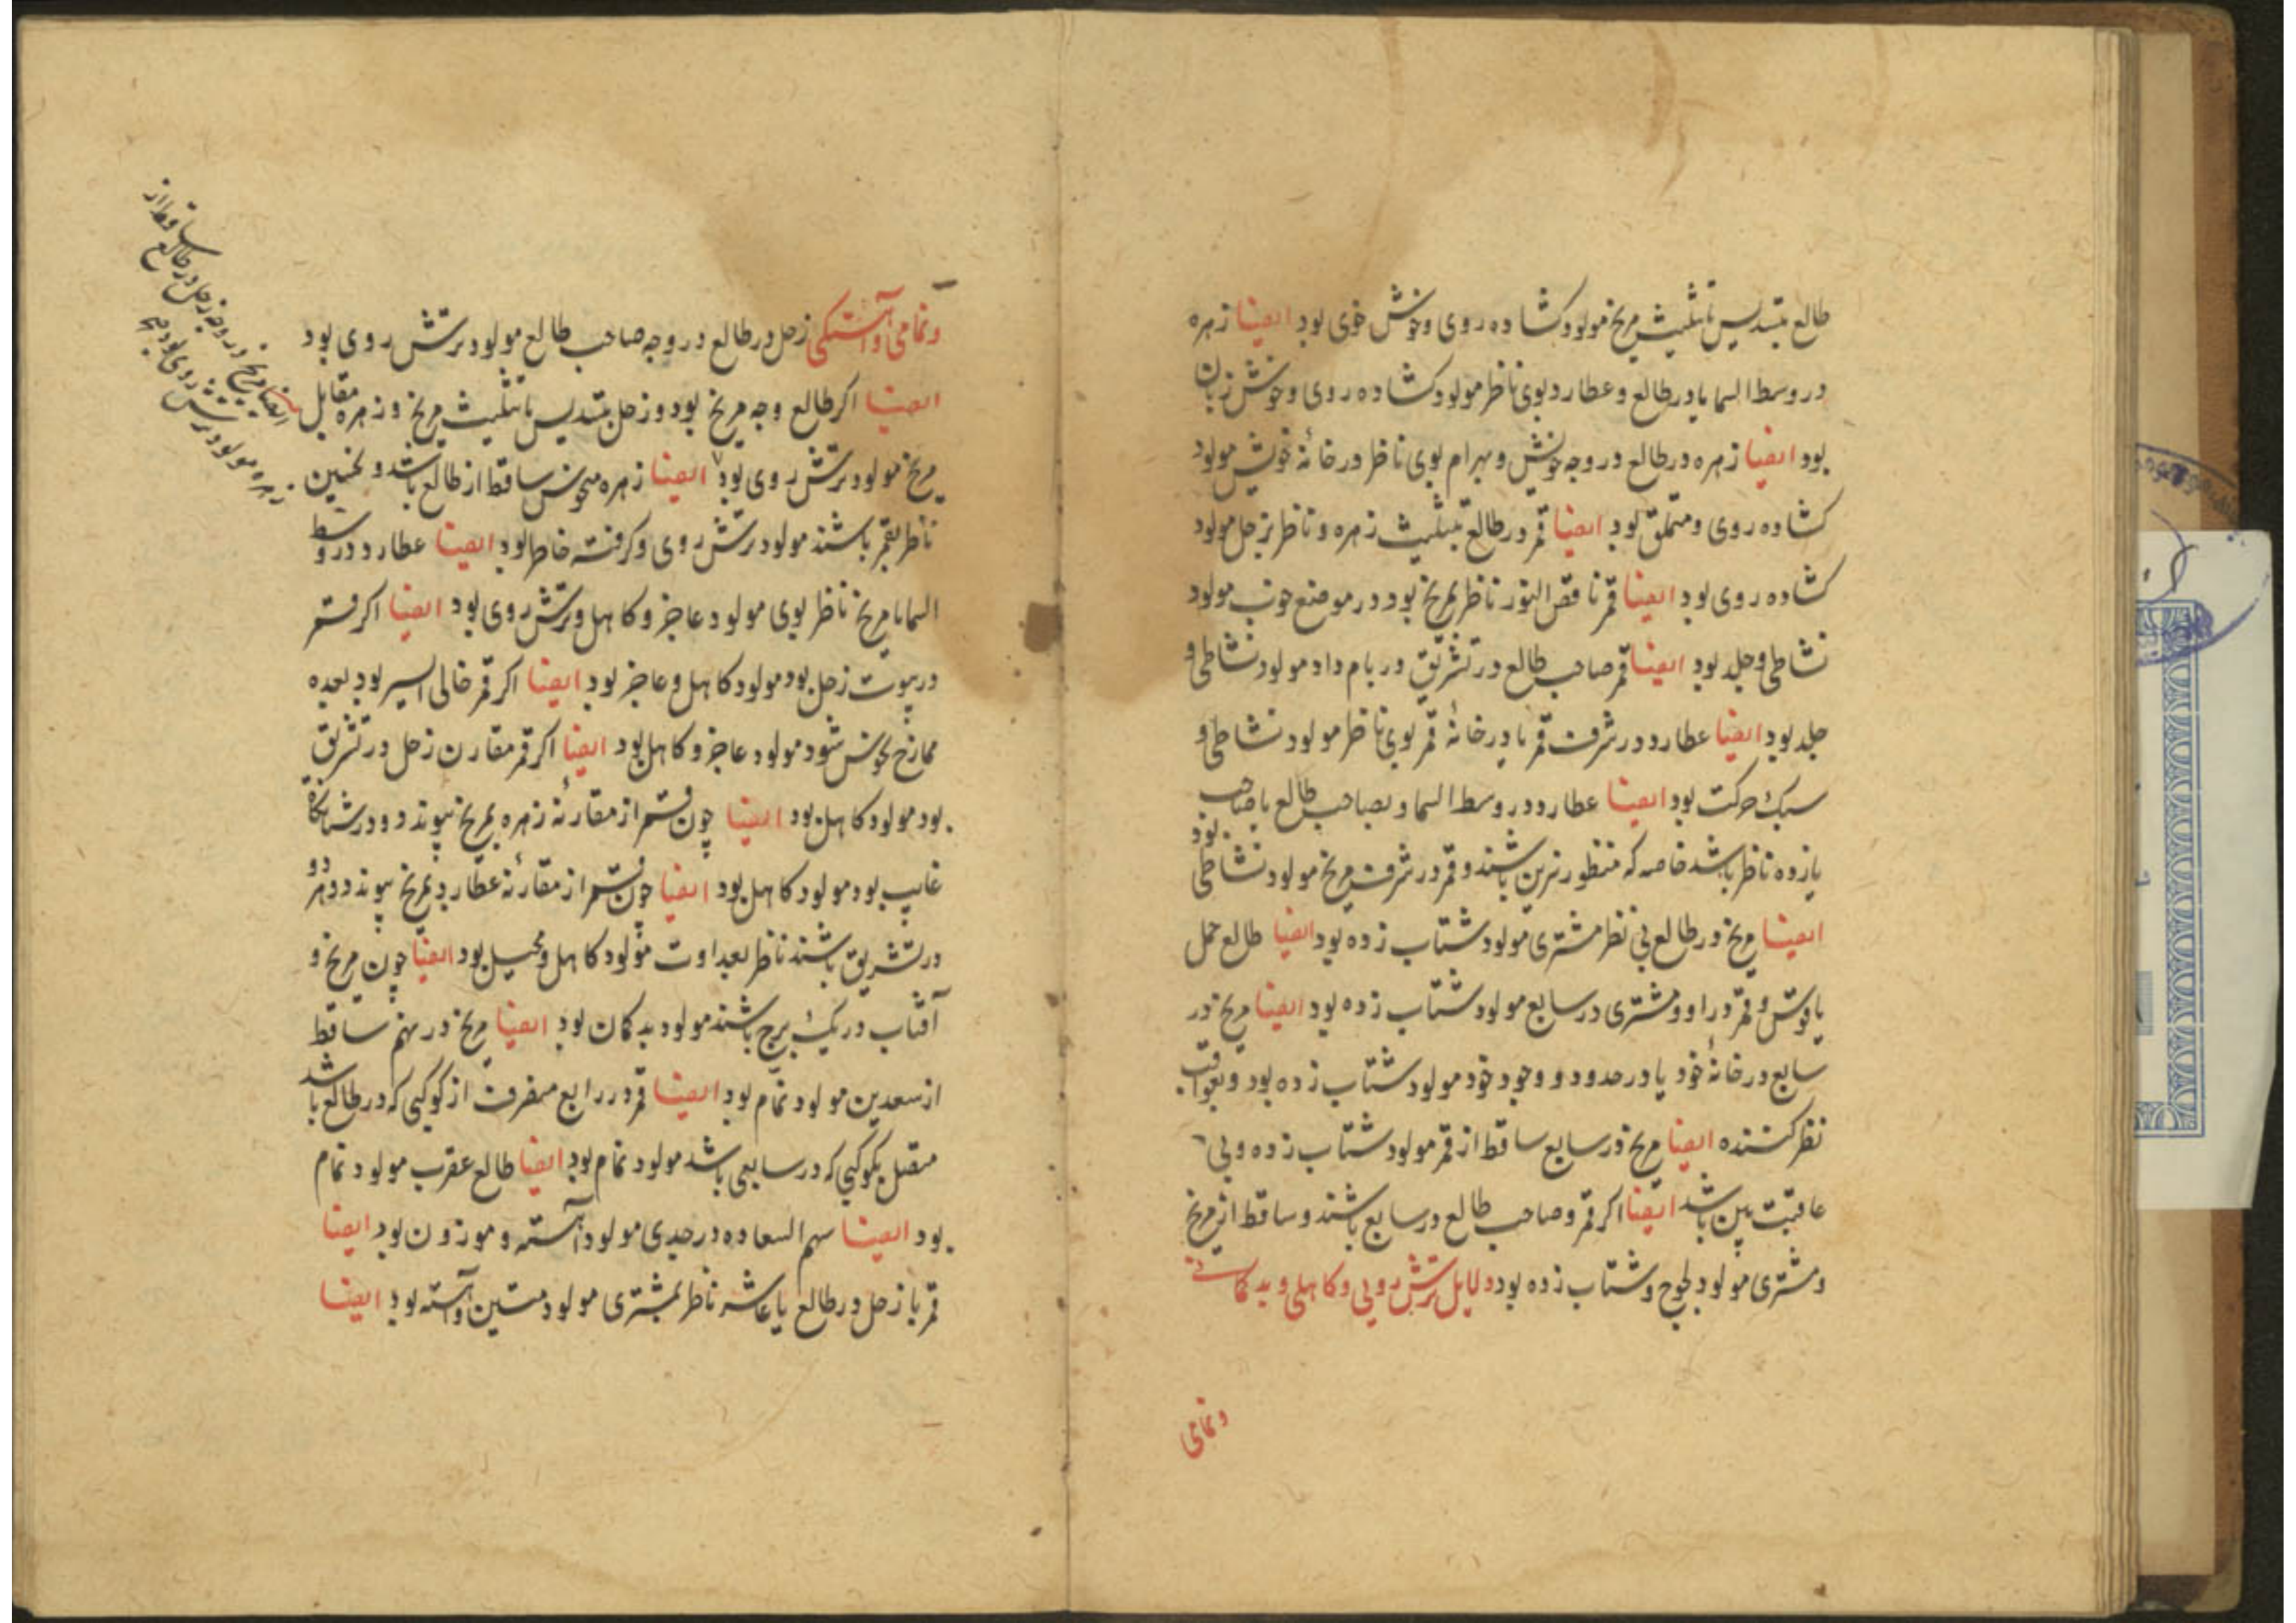 طالع بتسدیس یا تثلیث مریخ مولود کشاده روی و خوش خوی بود ایضا زهره
در وسط السما یا در طالع و عطارد بوی ناظر مولود کشاده روی و خوش زبان
بود ایضا زهره در طالع در وجه خویش و بهرام بوی ناظر در خانهٔ خویش مولود
کشاده روی و متملق بود ایضا قمر در طالع بتثلیث زهره و ناظر بزحل مولود
کشاده روی بود ایضا قمر ناقص النور ناظر بمریخ بود در موضع خوب مولود
نشاطی و جلد بود ایضا قمر صاحب طالع در تشریق در بام داد مولود نشاطی و
جلد بود ایضا عطارد در شرف قمر یا در خانهٔ قمر بوی ناظر مولود نشاطی و
سبک حرکت بود ایضا عطارد در وسط السما و بصاحب طالع یا صاحب
یازده ناظر باشد خاصه که منظور نیرین باشند و قمر در شرف مریخ مولود نشاطی بود
ایضا مریخ در طالع بی نظر مشتری مولود شتاب زده بود ایضا طالع حمل
یا قوس و قمر در او و مشتری در سابع مولود شتاب زده بود ایضا مریخ در
سابع در خانهٔ خود یا در حدود و وجود خود مولود شتاب زده بود و بعواقب
نظر کننده ایضا مریخ در سابع ساقط از قمر مولود شتاب زده و بی
عاقبت بین باشد ایضا اکر قمر و صاحب طالع در سابع باشند و ساقط از مریخ
و مشتری مولود لجوج و شتاب زده بود دلایل ترش رویی و کاهلی و بد کمانی
و تمامی
و تمامی و آهستکی زحل در طالع در وجه صاحب طالع مولود ترش روی بود
ایضا اکر طالع وجه مریخ بود و زحل بتسدیس یا تثلیث مریخ و زهره مقابل
مریخ مولود ترش روی بود ایضا زهره منحوس ساقط از طالع باشد و نحسین
ناظر بقمر باشند مولود ترش روی و کرفته خاطر بود ایضا عطارد در وسط
السما با مریخ ناظر بوی مولود عاجز و کاهل و ترش روی بود ایضا اکر قمر
در بیوت زحل بود مولود کاهل و عاجز بود ایضا اکر قمر خالی السیر بود بعده
ممازج نحوس شود مولود عاجز و کاهل بود ایضا اکر قمر مقارن زحل در تشریق
بود مولود کاهل بود ایضا چون قمر از مقارنهٔ زهره بمریخ پیوندد و در شبانکاه
غایب بود مولود کاهل بود ایضا چون قمر از مقارنهٔ عطارد بمریخ پیوندد و هر دو
در تشریق باشند ناظر بعداوت مولود کاهل و محیل بود ایضا چون مریخ و
آفتاب در یک برج باشند مولود بد کمان بود ایضا مریخ در نهم ساقط
از سعدین مولود نمام بود ایضا قمر در رابع منصرف از کوکبی که در طالع باشد
متصل بکوکبی که در سابعی باشد مولود نمام بود ایضا طالع عقرب مولود نمام
بود ایضا سهم السعاده در جدی مولود آهسته و موزون بود ایضا
قمر با زحل در طالع یا عاشر ناظر بمشتری مولود متین و آهسته بود ایضا
ایضا مریخ در وجه زحل در طالع ساقط از
زهره مولود ترش روی بود